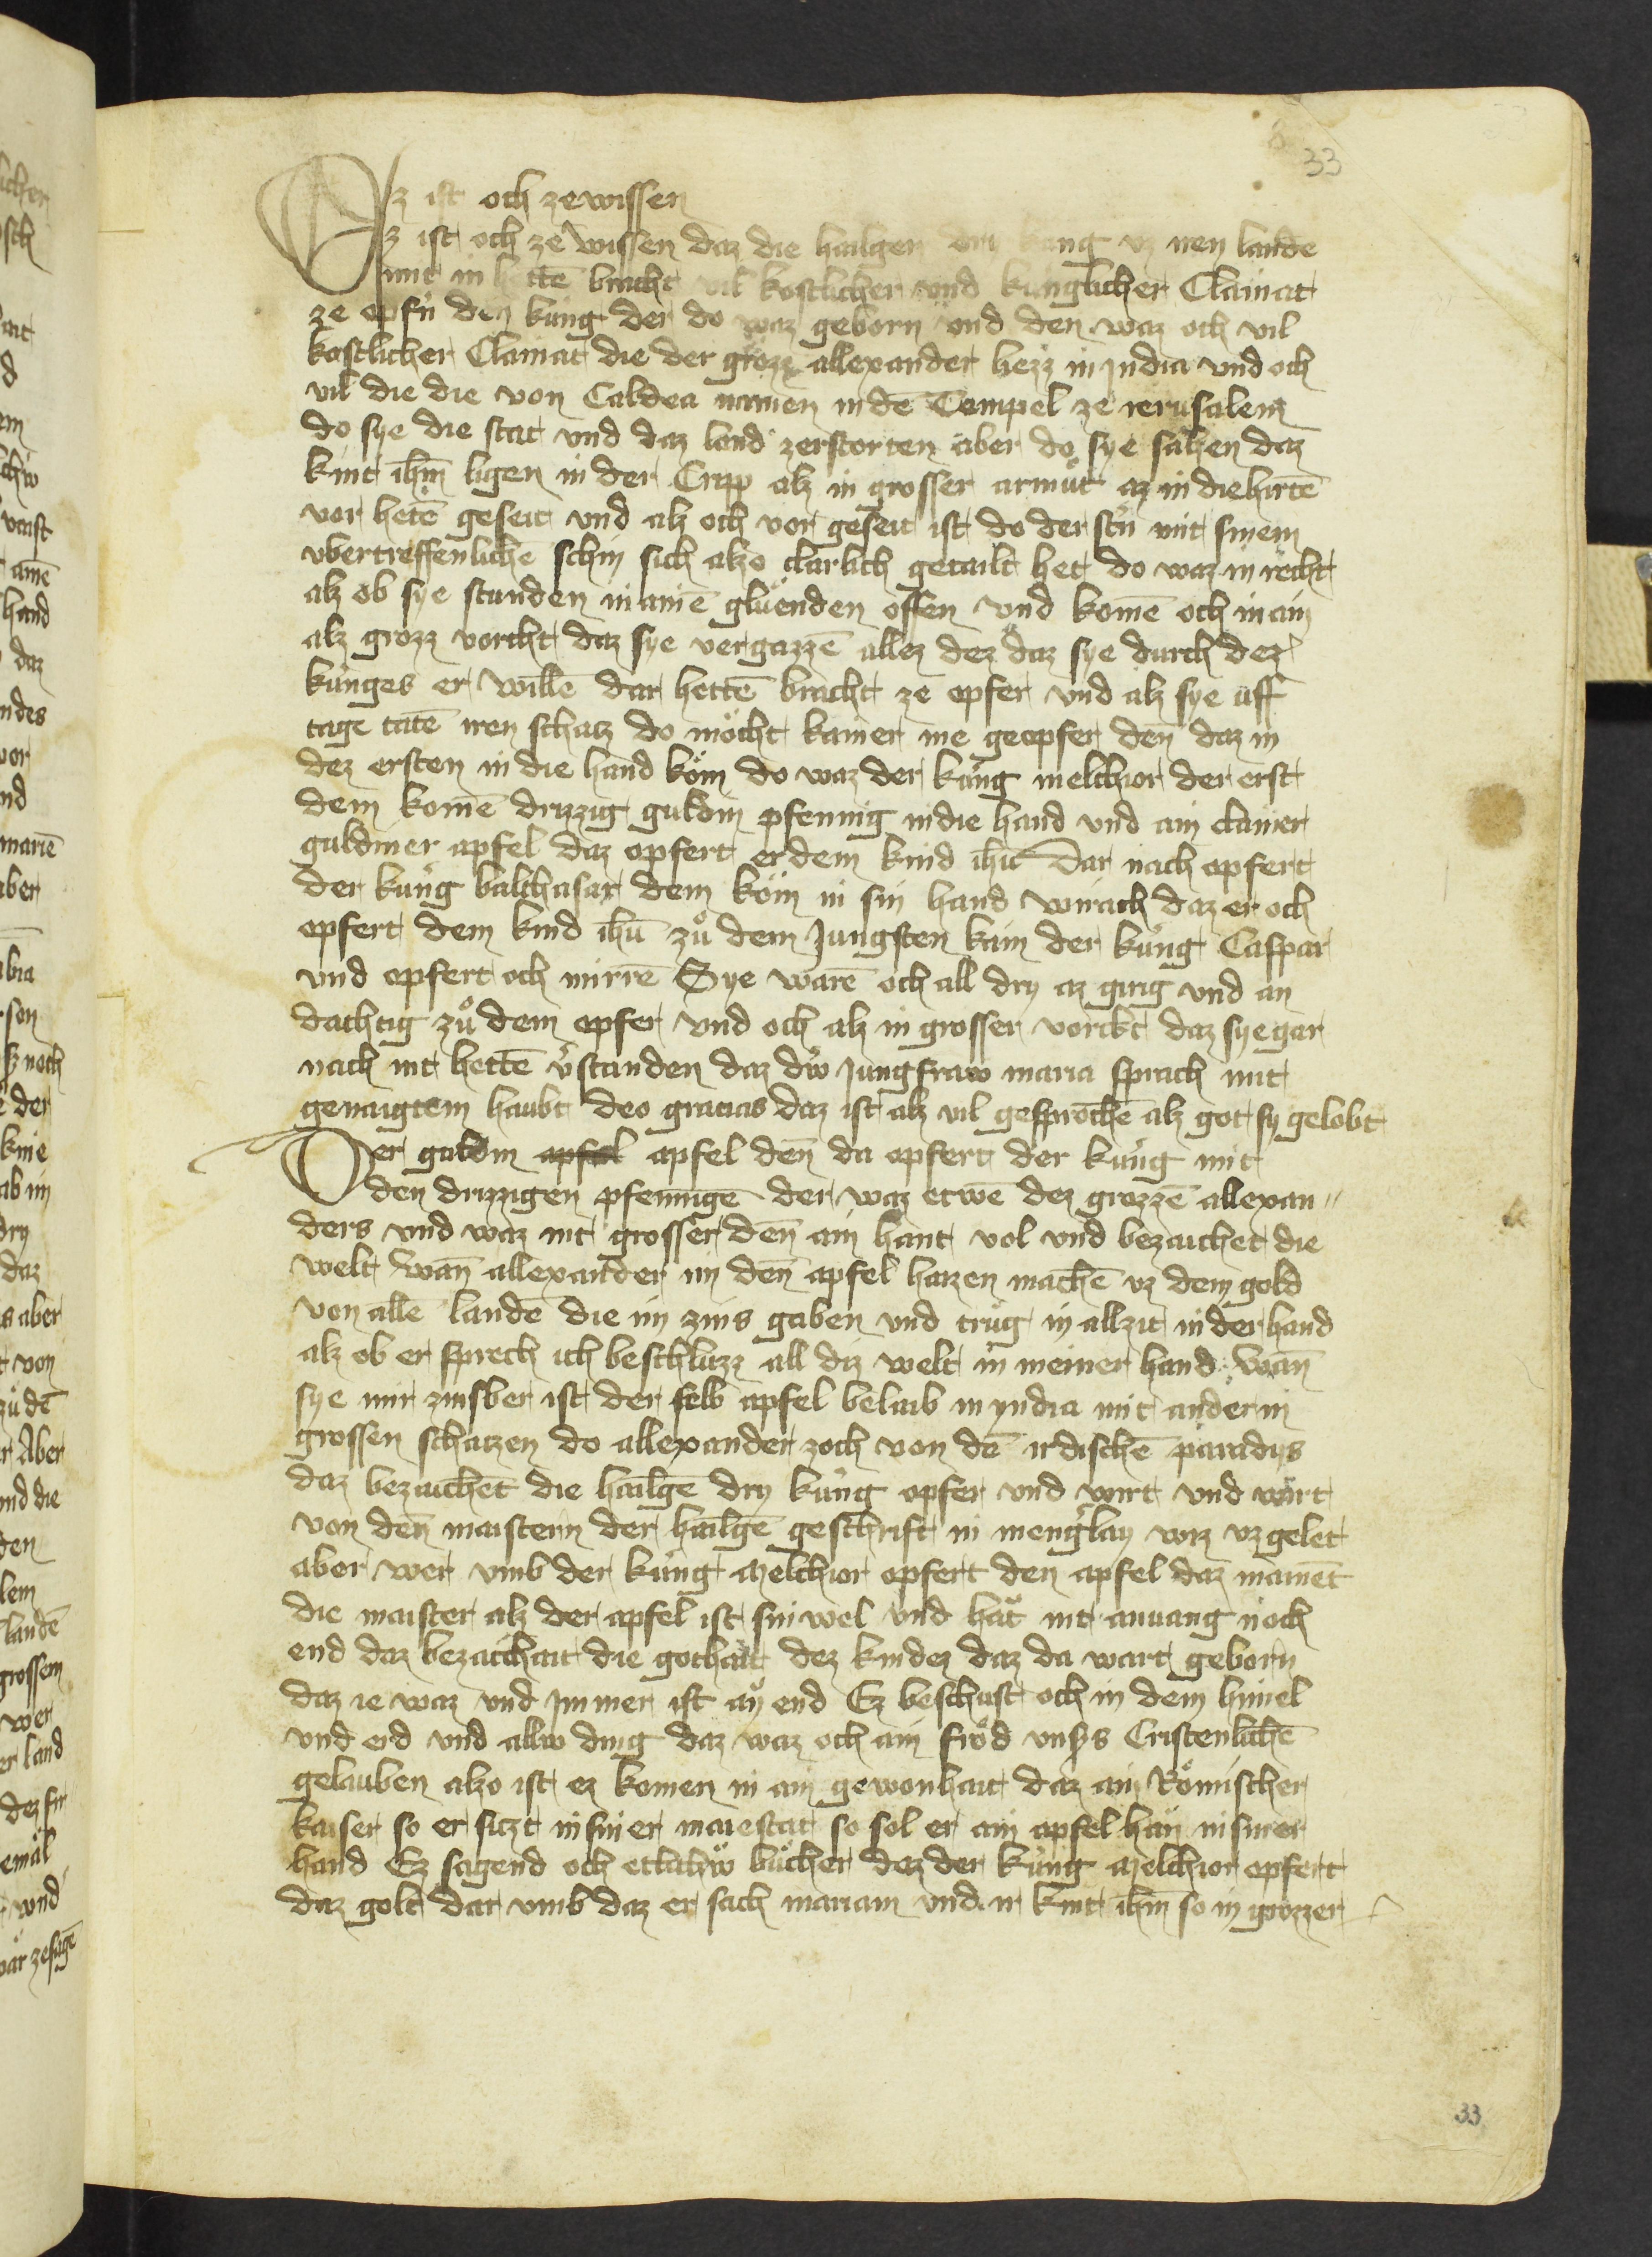 33
Ez ist och zewissen
Ez ist och ze wissen daz die hailgen dry kung vz iren lande
mit in hettē bracht vil kostlicher vnd kunglicher Clainat
ze opfn̄ den kung der do waz geborn vnd den waz och vil
kostlicher Clainat die der grozz allexander hezz in Jndia vnd och
vil die die von Caldea namen in dē Tempel ze ierusalem
do sye die stat vnd daz land zerstorten aber do sye sahen daz
kint ihm̄ ligen in der Cripp alz in grosser armůt az in die hirtē
vor hetē geseit vnd alz och vor geseit ist do der stn̄ mit sinem
vbertreffenlichē schin sich alzo clarlich getailt het do waz in recht
alz ob sye stunden in ainē glůenden offen vnd komē och in ain
alz grozz vorcht daz sye vergazzē allez dez daz sye durch dez
kunges er willē dar hettē bracht ze opfer vnd alz sye uff
tage tatē iren schatz do möcht kainer me geopfer den daz in
dez ersten in die hand köm do waz der kung melchior der erst
dem komē drizzig guldin pfennig in die hand vnd ain clainer
guldiner apfel daz opfert er dem kind ihū Dar nach opfert
der kung balthasar dem köm in sin hand wirach daz er och
opfert dem kind ihū zů dem Jungsten kam der kung Caspar
vnd opfert och mirrē Sye warē och all dry az girig vnd an
dachtig zů dem opfer vnd och alz in grosser vorcht daz sye gar
nach nit hettē v̄standen daz dw̄ Jungfraw maria sprach mit
genaigtem haubt deo gracias daz ist alz vil gesprochē alz got sy gelobt
Der guldin apfel apfel den da opfert der kung mit
den drizzigen pfennigē der waz etwē dez grozzē allexan
ders vnd waz nit grosser den ain hant vol vnd bezaichet die
welt wan̄ allexander im den apfel haizen machē vz dem gold
von allē landē die im zins gaben vnd trůg in allzit in der hand
alz ob er sprech ich beschluzz all diz welt in meiner hand wan̄
sye mir zinsber ist der selb apfel belaib in yndia mit anderm
grossen schatzen do allexander zoch von dē irdischē paradys
daz bezaichet die hailgē dry kung opfer vnd wirt vnd wart
von den maistern der hailgē geschrift in menglay wiz vz gelet
aber wer vmb der kung Melchior opfert den apfel daz mainēt
die maister alz der apfel ist sinwel vnd hat nit anuang noch
end daz bezaichait die gothait dez kindez daz da wart geborn
daz ie waz vnd Jmmer ist an end Ez beschust och in dem himel
vnd erd vnd allw ding daz waz och ain fröd vnsers Cristenlichē
gelauben alzo ist ez komen in ain gewonhait daz ain Römischer
kaiser so er sitzt in siner maiestat so sol er ain apfel han in siner
hand Ez sagend och etlichw bůcher daz der kung Melchior opfert
daz golt dar vmb daz er sach mariam vnd ir kint ihm̄ so in grozzer
33